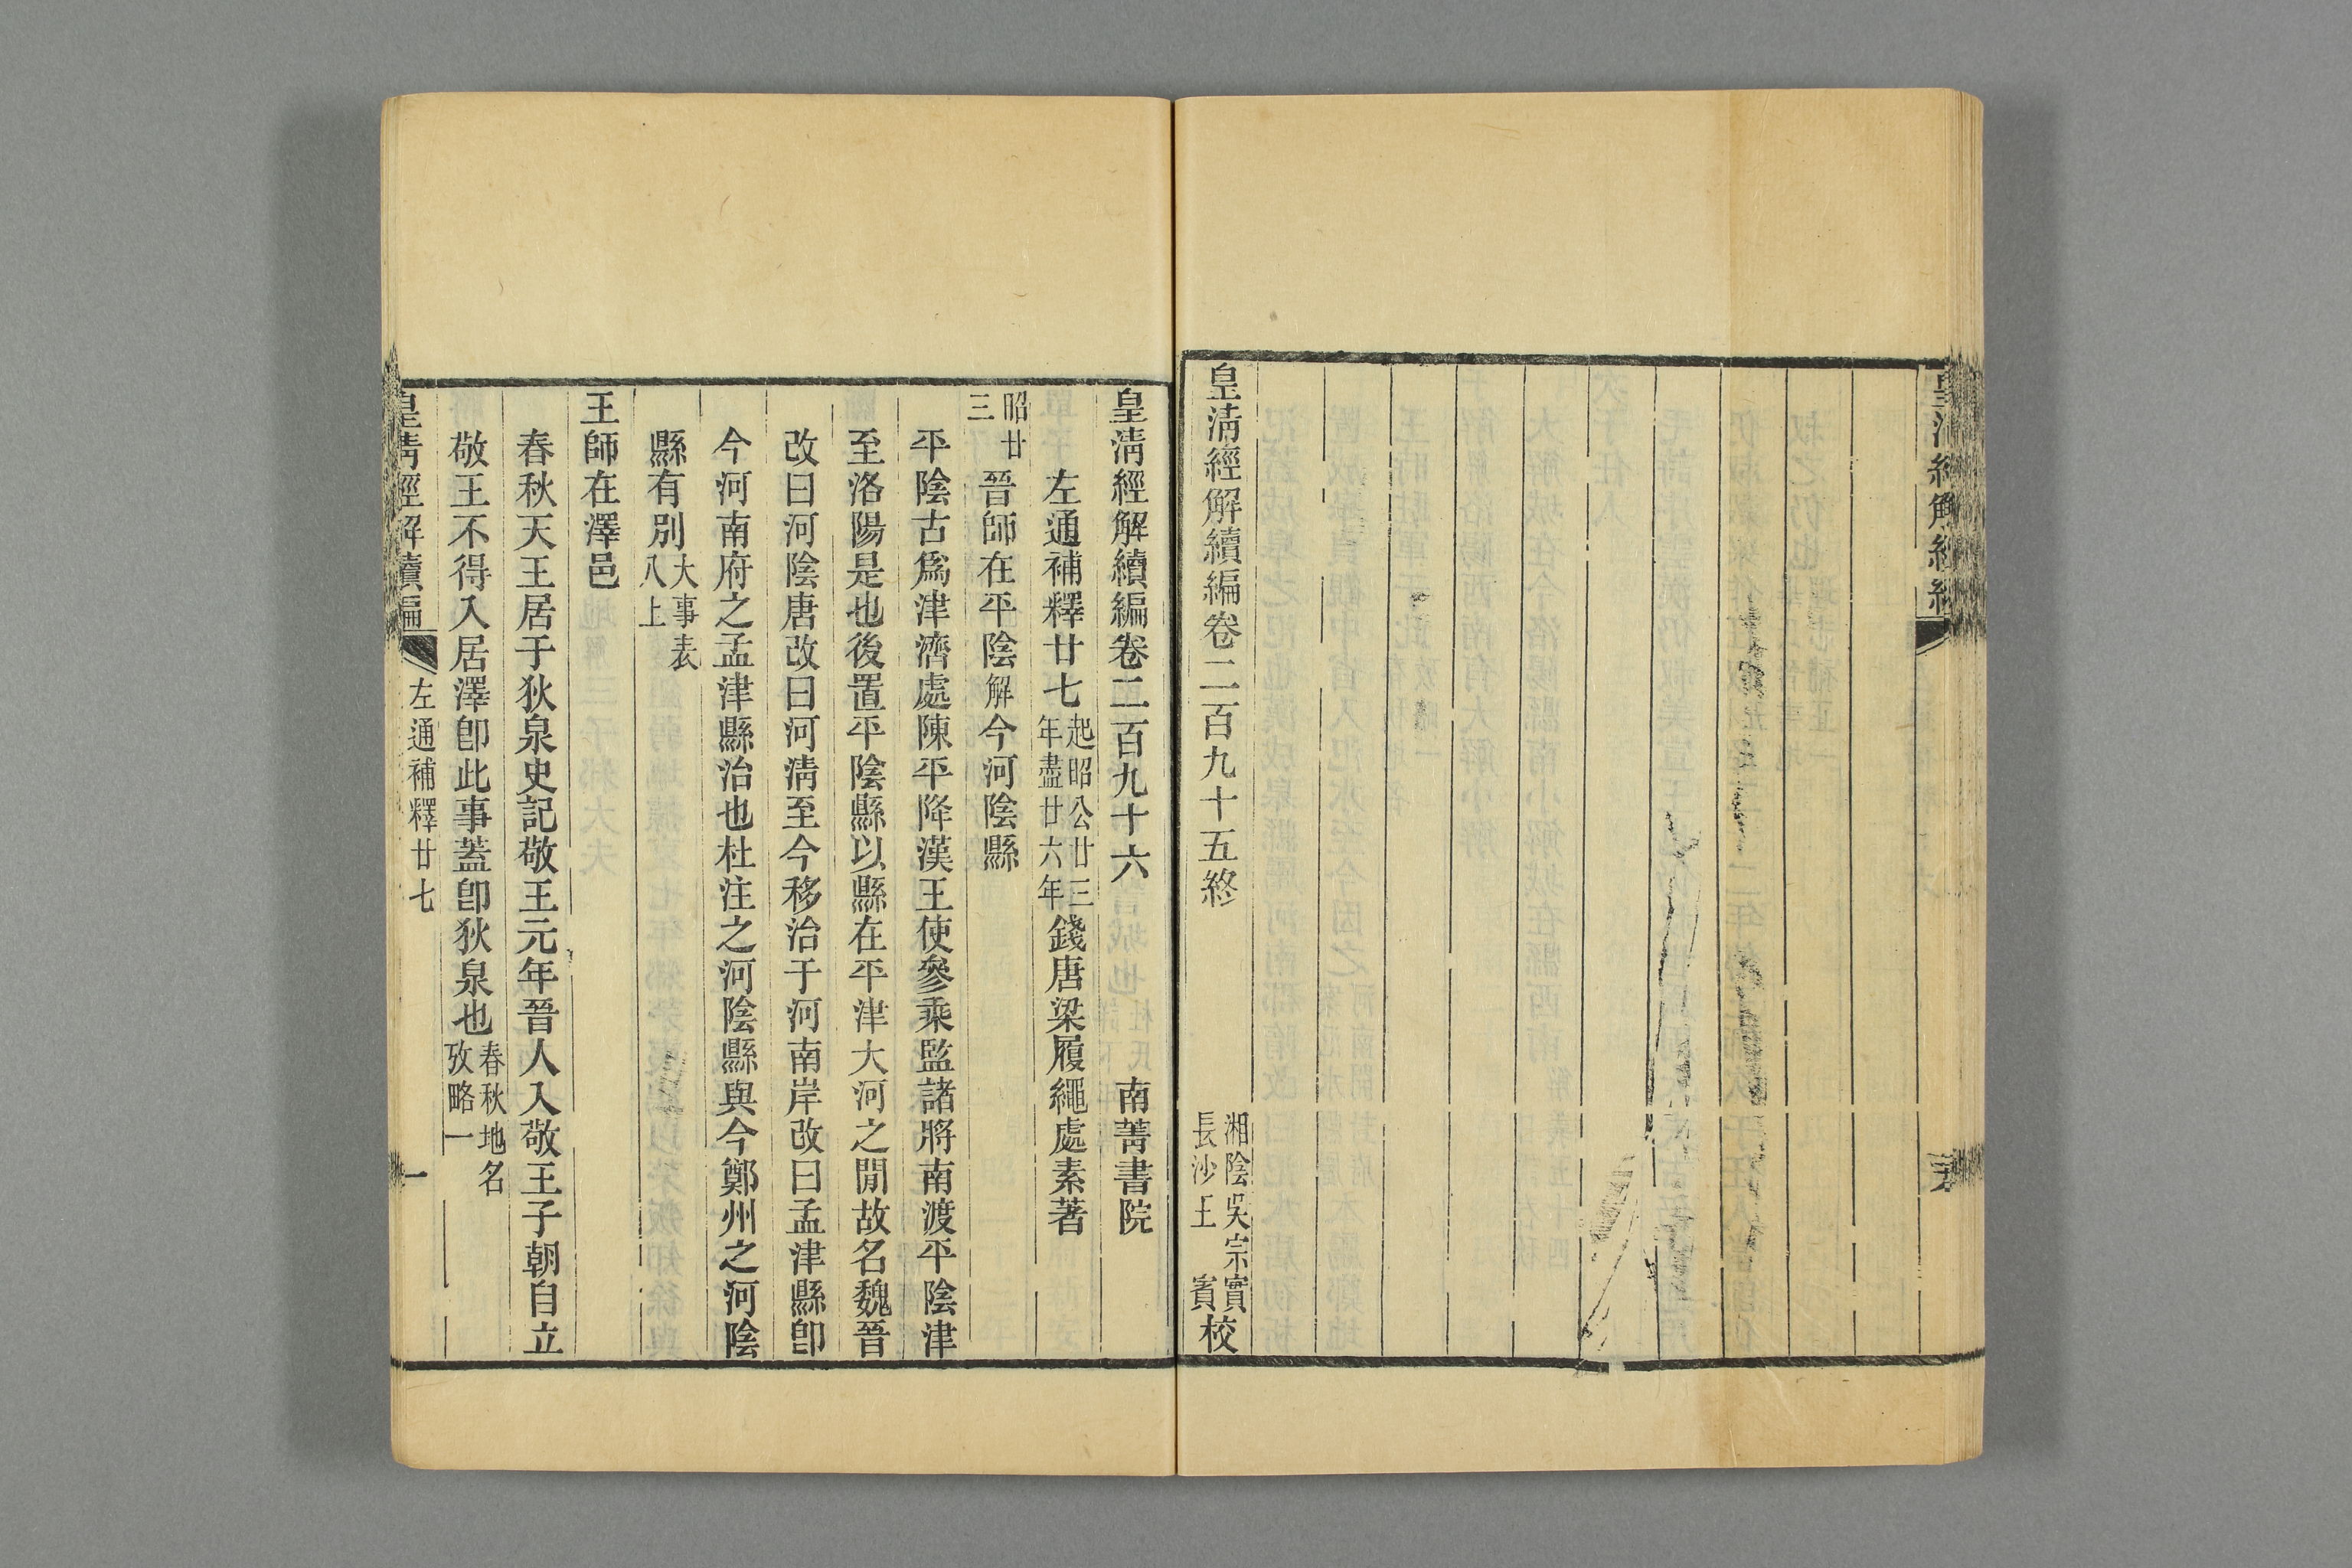 皇清經解續編卷二百九十五終
湘陰吳宗實
長沙王　賓校
皇清經解續編卷二百九十六　南菁書院
左通補釋廿七起昭公廿三年盡廿六年錢唐梁履繩處素著
昭廿三晉師在平陰解今河陰縣
平陰古爲津濟處陳平降漢王使參乘監諸將南渡平陰津
至洛陽是也後置平陰縣以縣在平津大河之閒故名魏晉
改曰河陰唐改曰河淸至今移治于河南岸改曰孟津縣卽
今河南府之孟津縣治也杜注之河陰縣與今鄭州之河陰
縣有別大事表八上
王師在澤邑
春秋天王居于狄泉史記敬王元年晉人入敬王子朝自立
敬王不得入居澤卽此事蓋卽狄泉也春秋地名攷略一
皇淸經解續編　左通補釋廿七　一